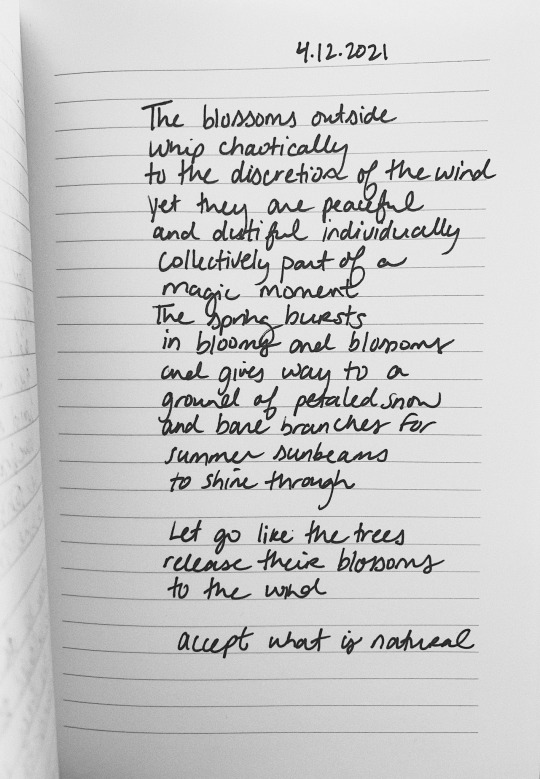 4.12.2021
The blossoms outside
whip chaotically
to the discretion of the wind
yet they are peaceful
and dutiful individually
collectively part of a
magic moment
The spring bursts
in blooms and blossoms
and gives way to a
ground of petaled snow
and bare branches for
summer sunbeams
to shine through
Let go like the trees
release their blossoms
to the wind
accept what is natural